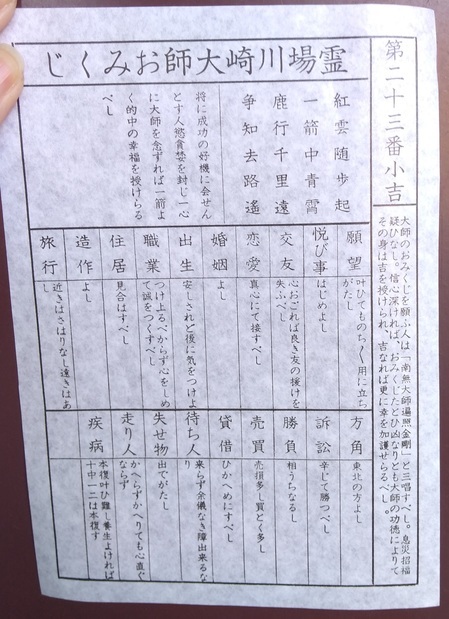 第二十三番小吉
大師のおみくじを願ふ人は「南無大師遍照金剛」と三唱すべし。息災招福
疑ひなし。信心深ければ、おみくじたとひ凶なりとも大師の功徳によりて
その身は吉を授けられ、吉なれば更に幸を加護せらるべし。
霊場川崎大師おみくじ
紅雲随歩起
一箭中青霄
鹿行千里遠
争知去路遙
将に成功の好機に会せん
とす人慾貪婪を封じ一心
に大師を念ずれば一箭よ
く的中の幸福を授けらる
べし
願望
叶ひてものち〳〵用に立ち
がたし
悦び事
はじめよし
交友
心おごれば良き友の援けを
失ふべし
恋愛
真心にて接すべし
婚姻
よし
出生
安しされど後に気をつけよ
職業
つけ上るべからず心をしめ
て誠をつくすべし
住居
見合はすべし
造作
よし
旅行
近きはさはりなし遠きはあ
し
方角
東北の方よし
訴訟
辛じて勝つべし
勝負
相うちなるし
売買
売損多し買とく多し
貸借
ひかへめにすべし
待ち人
来らず余儀なき障出来るな
り
失せ物
出でがたし
走り人
かへらずかへりても心直ぐ
ならず
疾病
本復叶ひ難し養生よければ
十中一二は本復す